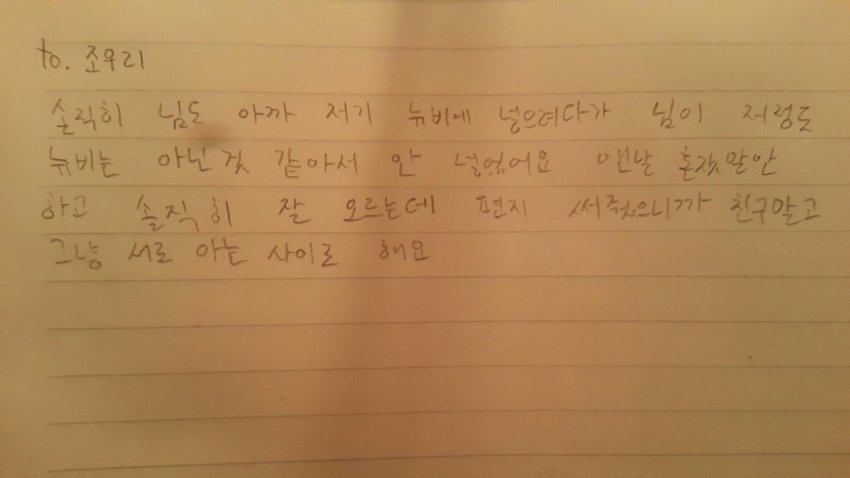 to. 조우리
솔직히 님도 아까 저기 뉴비에 넣으려다가 님이 저렁도
뉴비는 아닌것 같아서 안 넣었어요 맨날 혼잣말만
하고 솔직히 잘 모르는데 편지 써줬으니까 친구말고
그냥 서로 아는 사이로 해요